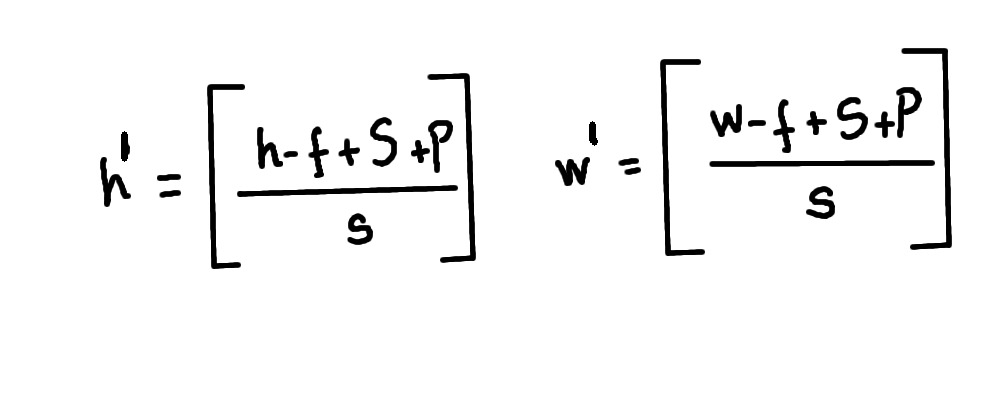 h' = [h-f+S+P / s] w' = [w-f+S+P / s]